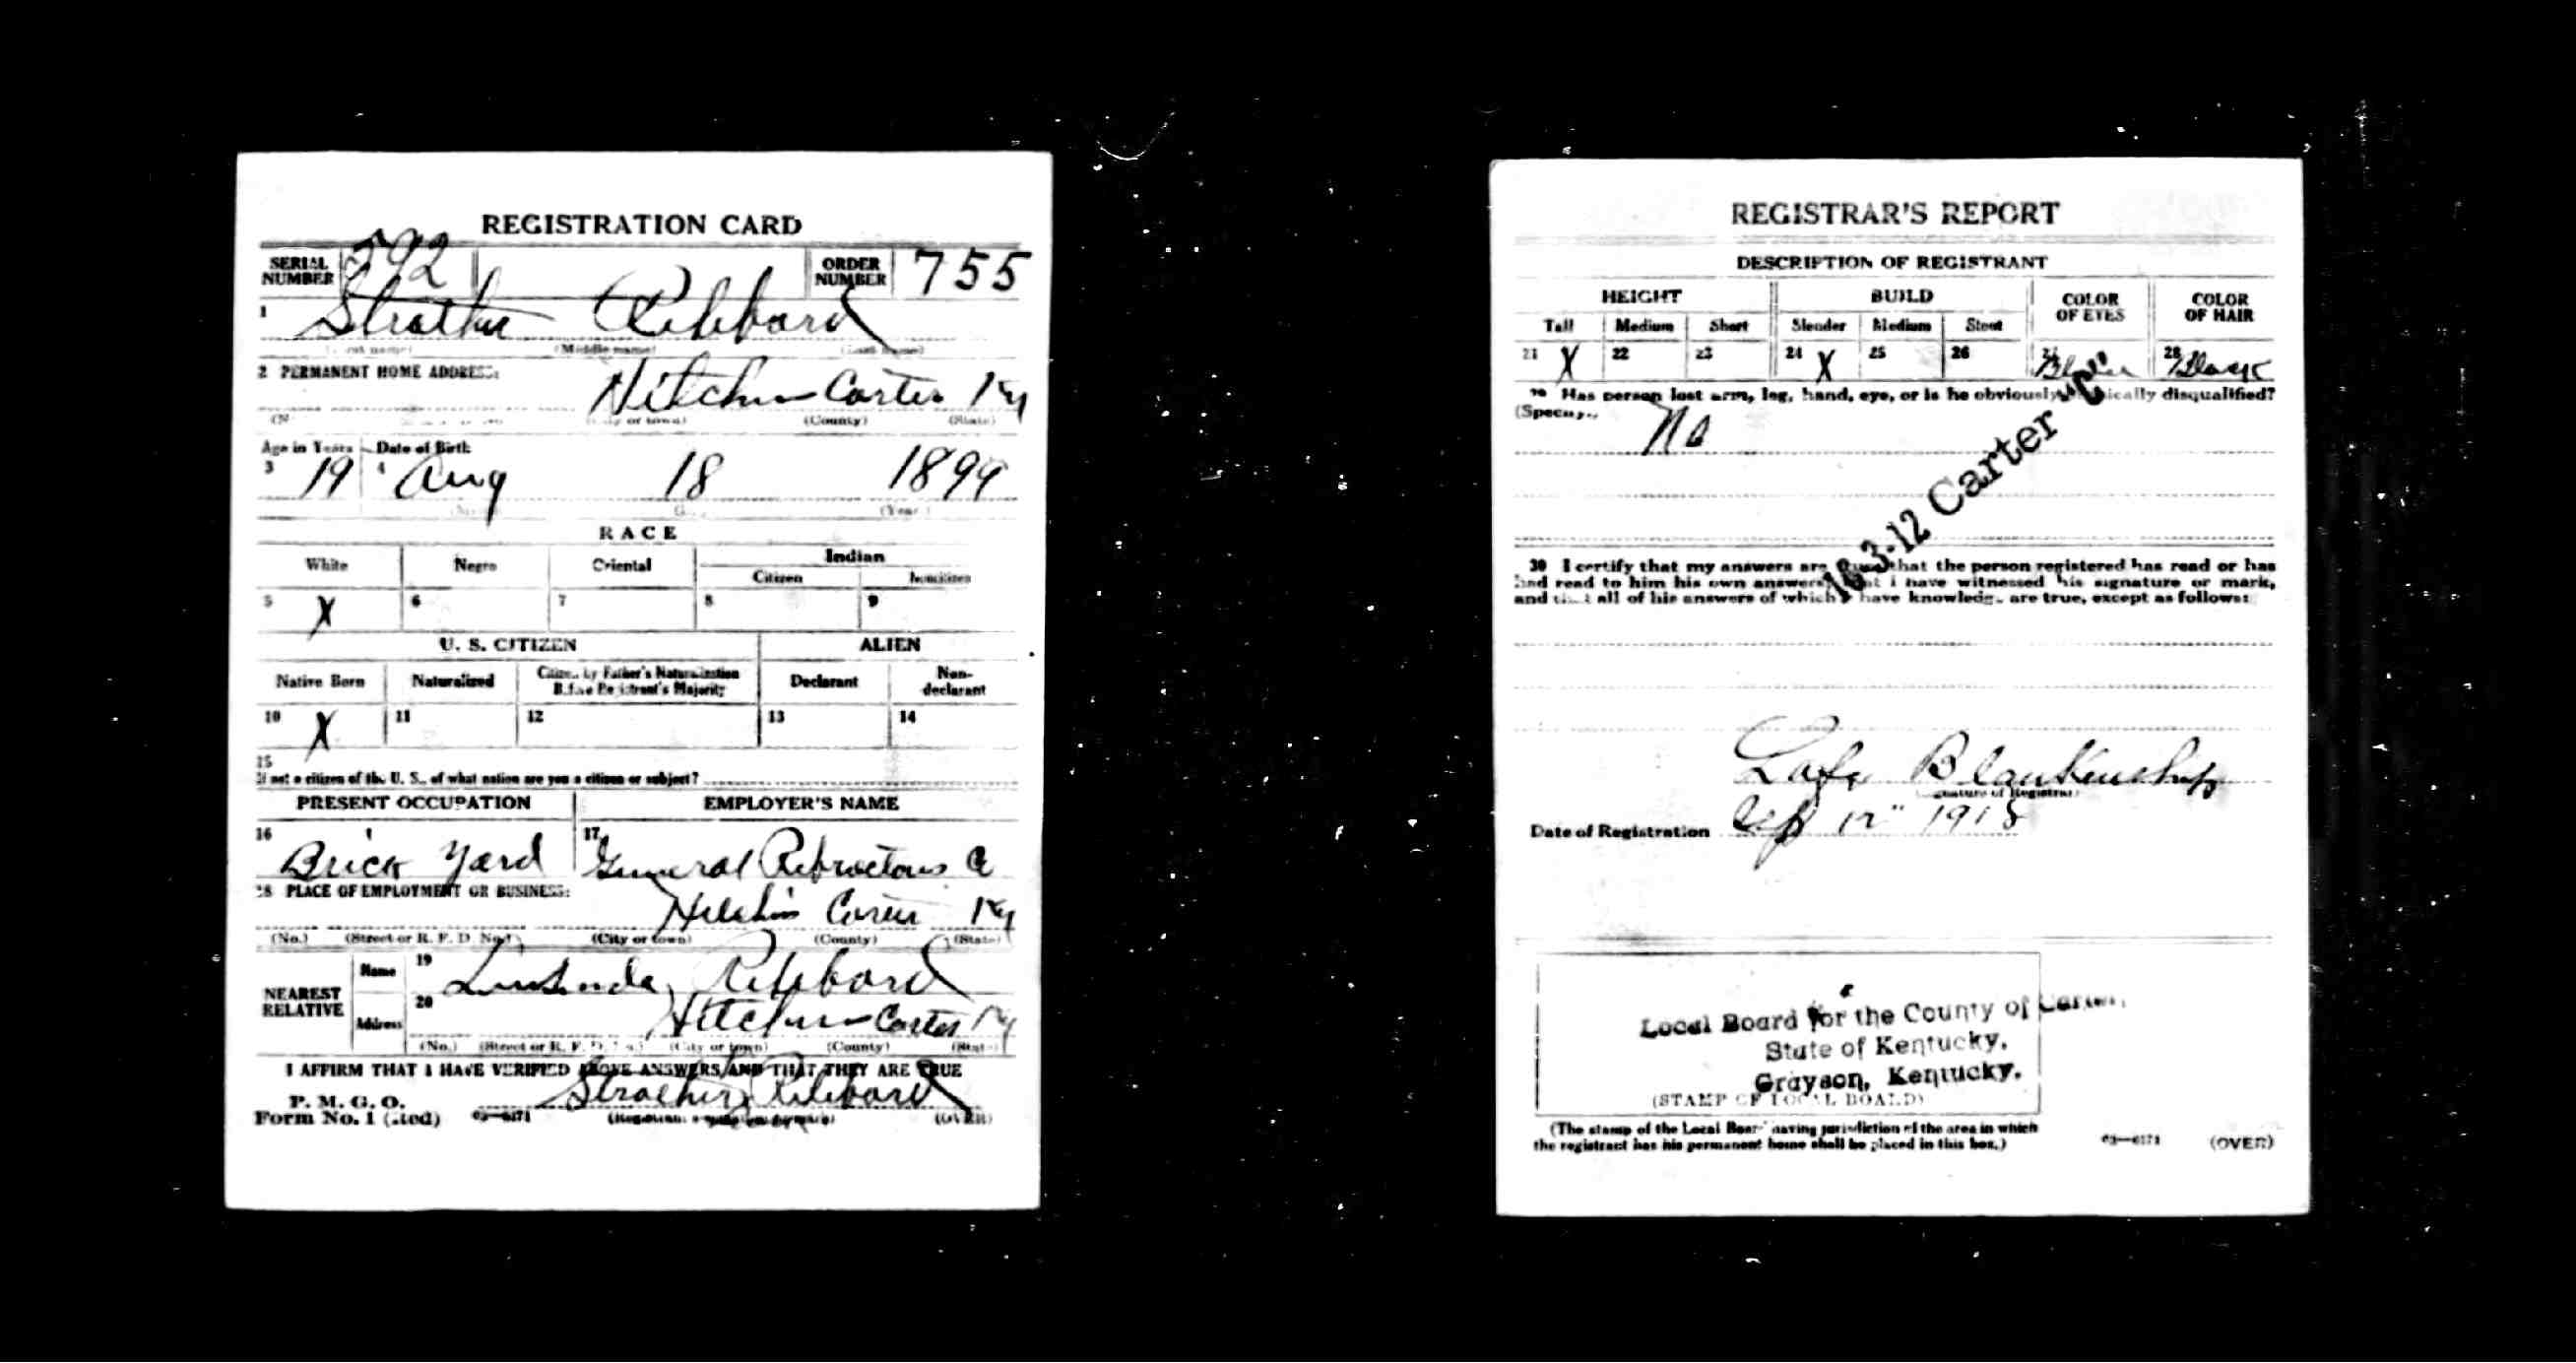 REGISTRATION CARD
SERIAL NUMBER 592 ORDER NUMBER 755
1 Strather
(Middle name)
2 PERMANENT HOME ADDRESS:
Hitchins Carter Ky
(County) (State)
Age in Years Date of Birth
3 19 4 Aug 18 1899
(Year)
RACE
White Negro Oriental Indian
Citizen Noncitizen
5 X 6 7 8 9
U. S. CITIZEN ALIEN
Native Born Naturalized Citizen by Father's Naturalization Before Registrant's Majority Declarant Non-declarant
10 X 11 12 13 14
15
If not a citizen of the U. S., of what nation are you a citizen or subject?
PRESENT OCCUPATION EMPLOYER'S NAME
16 Brick Yard 17 General
18 PLACE OF EMPLOYMENT OR BUSINESS:
Hitchins Carter Ky
(No.) (Street or R. F. D. No.) (City or town) (County) (State)
NEAREST RELATIVE
Name 19
Address 20 Hitchins Carter Ky
(No.) (Street or R. F. D. No.) (City or town) (County) (State)
I AFFIRM THAT I HAVE VERIFIED ABOVE ANSWERS AND THAT THEY ARE TRUE
P. M. G. O.
Form No. 1 (Red) 03—6171 Strather (OVER)
REGISTRAR'S REPORT
DESCRIPTION OF REGISTRANT
HEIGHT BUILD COLOR OF EYES COLOR OF HAIR
Tall Medium Short Slender Medium Stout
21 X 22 23 24 X 25 26 27 28 Black
29 Has person lost arm, leg, hand, eye, or is he obviously physically disqualified?
(Specify.) No
16-3-12 Carter "C"
30 I certify that my answers are true, that the person registered has read or has
had read to him his own answers, that I have witnessed his signature or mark,
and that all of his answers of which I have knowledge are true, except as follows:
Lafe Blankenship
(Signature of Registrar)
Date of Registration Sep 12" 1918
Local Board for the County of Carter,
State of Kentucky,
Grayson, Kentucky.
(STAMP OF LOCAL BOARD)
(The stamp of the Local Board having jurisdiction of the area in which
the registrant has his permanent home shall be placed in this box.)
03—6171 (OVER)